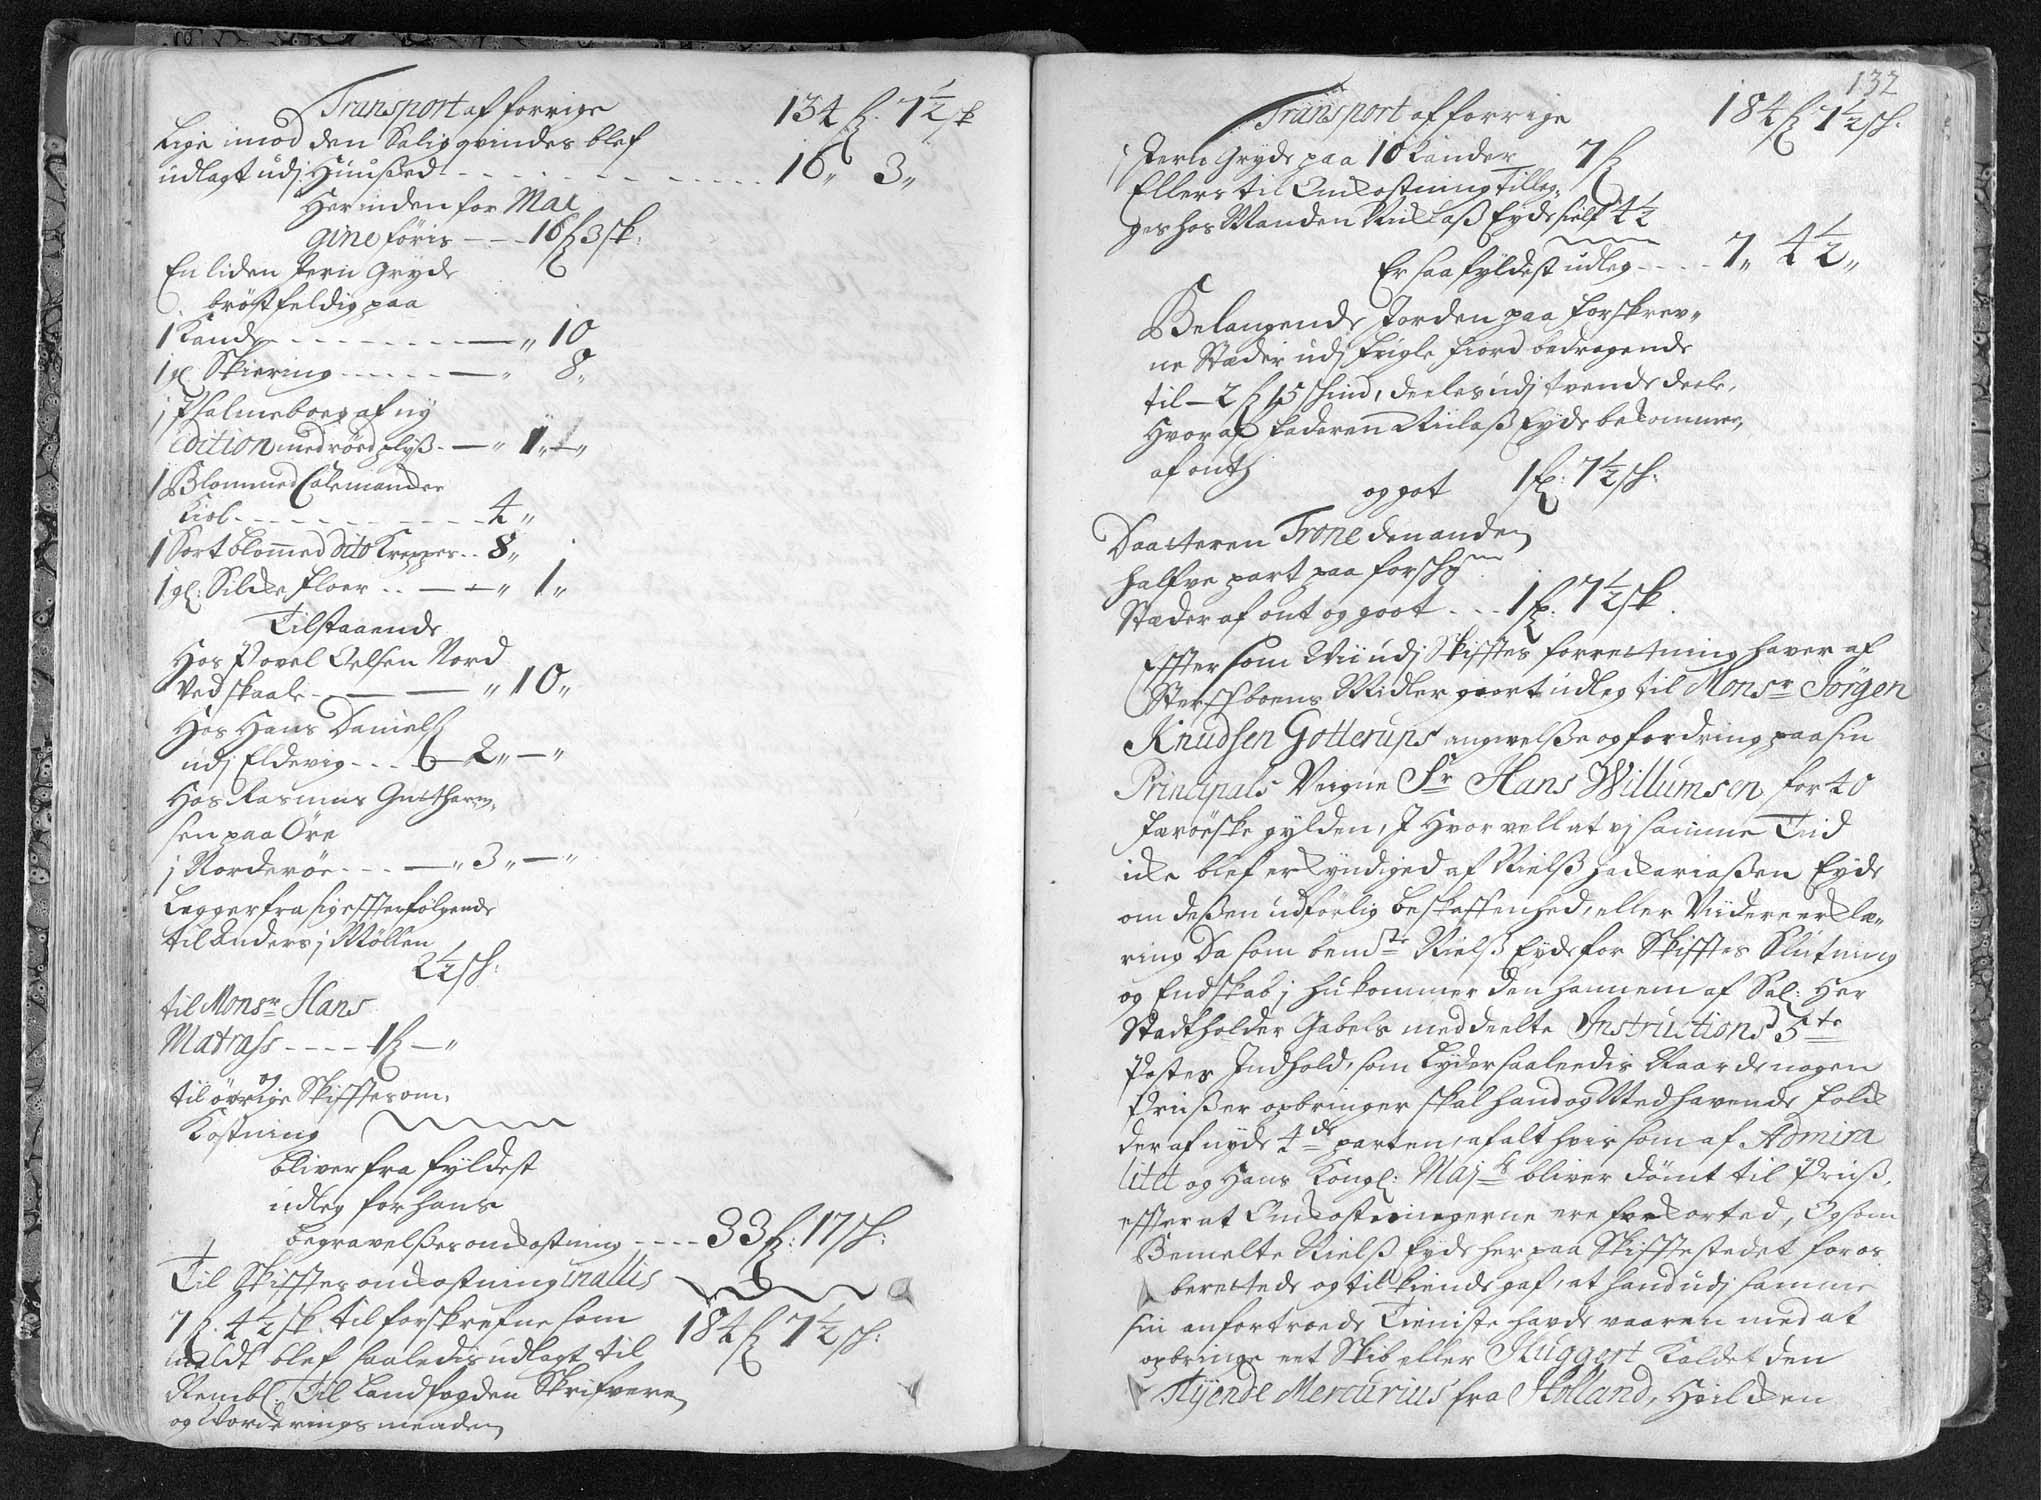 Transport af forrige 134 f. 7½ sk
Lige imod den Salig qvindes blef
udlagt udj Huußed - - - - - 16 „ 3 „
Her inden for Mai
gine föris - - - 16 f 3 sk:
En liden Jern Gryde
bröstfeldig paa
1 Kande - - - - - „ 10
1 gl Skiering - - - - „ 8 „
j Psalmeboeg af ny
Edition med röed plyß - „ 1 „ - „
1 Blommed Calemandes
Kiol - - - - - 4 „
1 Sort blommed dito Kreppes - - 8 „
1 gl: Silcke floer - - - „ 1 „
Tilstaaende
Hos Povel Oelsen Nord
Ved skaale - - - „ 10 „
Hos Hans Daniels
udj Eldevig - - - 2 „ - „
Hos Rasmus Guttharm„
sen paa Öre
j Norderöe - - - „ 3 „ - „
Legger fra sig effterfölgende
til Anders j Möllen
2½ sh:
til Monsr Hans
Matrass - - - - 1 f - „
og
til övrige Skifftes om„
Kostning
bliver fra fyldest
udleg for hans
begravelßes omkostning - - - - 33 f: 17 sh:
Til Skifftes omkostning in allis
7 f. 4½ sk. til forskrefne som
meldt blef saaledis udlagt til 184 f 7½ sh:
Rembl: Til Landfogden Skrifveren
og Vorderings mænden
132
Transport af forrige 184 f 7½ sh:
j Jern Gryde paa 10 Kander 7 f
Ellers til Omkostning tilleg„
ges hos Manden Niclaß Eyde self 4½
Er saa fyldest udleg - - - - 7 „ 4½ „
Belangende Jorden paa forskrev„
ne Stæder udj Fugle fiord bedragende
til - 2 f 15 skind, deeles udj tvende deele,
Hvoraf Faderen Niclaß Eyde bekommer,
af ondt
og got 1 f: 7½ sh:
Daatteren Trone den anden
halfve part paa forschne
Stæder af ont og goot - - - 1 f: 7½ sk.
Effter som Wii udj Skifftes forretning haver af
Sterfboens Midler giort udleg til Monsr Jörgen
Knudsen Gotterups angivelße og fordring paa sin
Principals Veigne Sr Hans Willumsen for 40
færöeske gylden, J Hvor vell at vj samme Tiid
icke blef erkyndiged af Nielß Zachariaßen Eyde
om deßen udförlig beskaffenhed, eller Viidere erklæ„
ring Da som bemte Nielß Eyde for Skifftes Slutning
og Endskab j hukommer den hannem af Sal: Her
Stadtholder Gabels meddeelte Instructions 5te
Postes Indhold, som Lyder saaleedis Naar de nogen
Prisser opbringer skal hand og Medhavende folck
der af nyde 4de parten, af alt hvis som af Admira
litet og Hans Kongl: Majts bliver dömt til Priiß,
effter at Omkostningerne ere forkorted, Og som
Bemelte Nielß Eyde her paa Skifftestedet for os
berettede og tilkiende gaf, at hand udj samme
sin anfortroede Tieniste havde vaaren med at
opbringe eet Skib eller Huggert Kaldet den
Flyende Mercurius fra Holland, Hvilcken